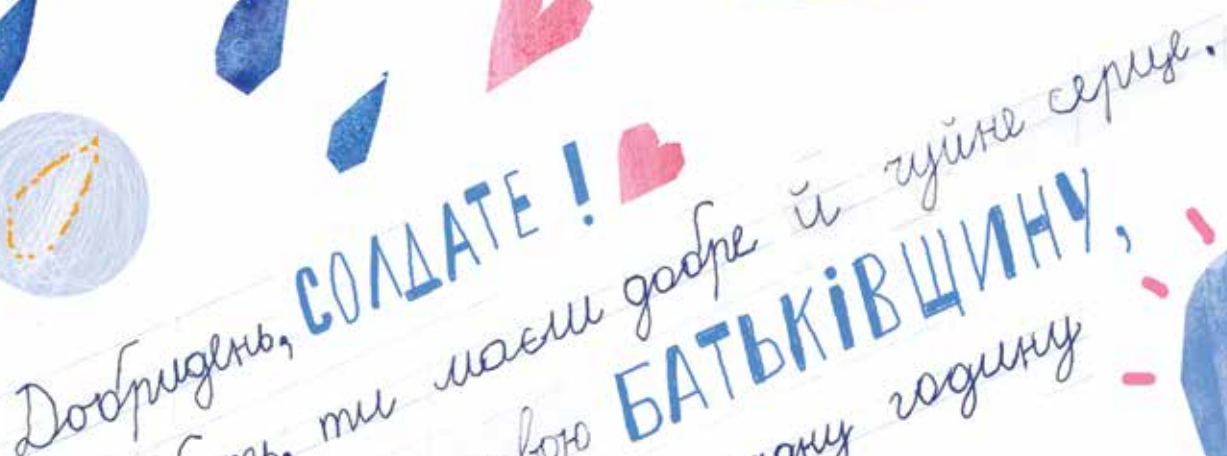 Добридень, СОЛДАТЕ!
ти маєш добре й чуйне серце.
БАТЬКІВЩИНУ,
годину